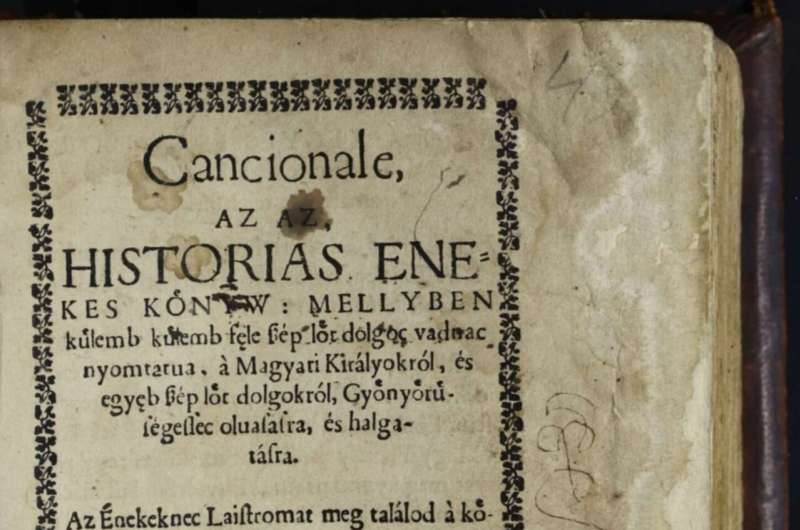 Cancionale,
AZ AZ,
HISTORIAS ENE=
KES KÖNYW: MELLYBEN
külemb külemb fęle ſzép löt dolgoc vadnac
nyomtatua, à Magyari Királyokról, és
egyęb ſzép löt dolgokról, Gyönyörü-
ſégeſſec oluaſaſra, és halga-
táſra.
Az Énekeknec Laiſtromat meg találod à kö-